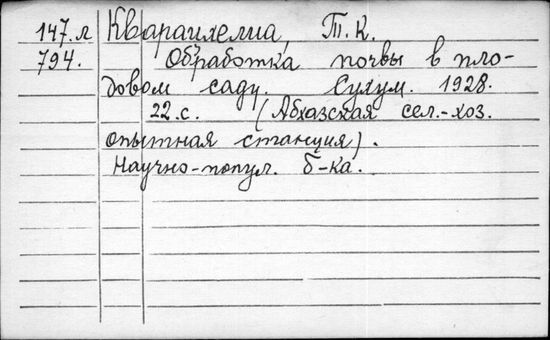 147.л Кварацхелиа, Т.К.
794. Обработка почвы в пло-
довом саду. Сухум. 1928.
22.с. (Абхазская сел.-хоз.
опытная станция).
Научно-попул. б-ка.